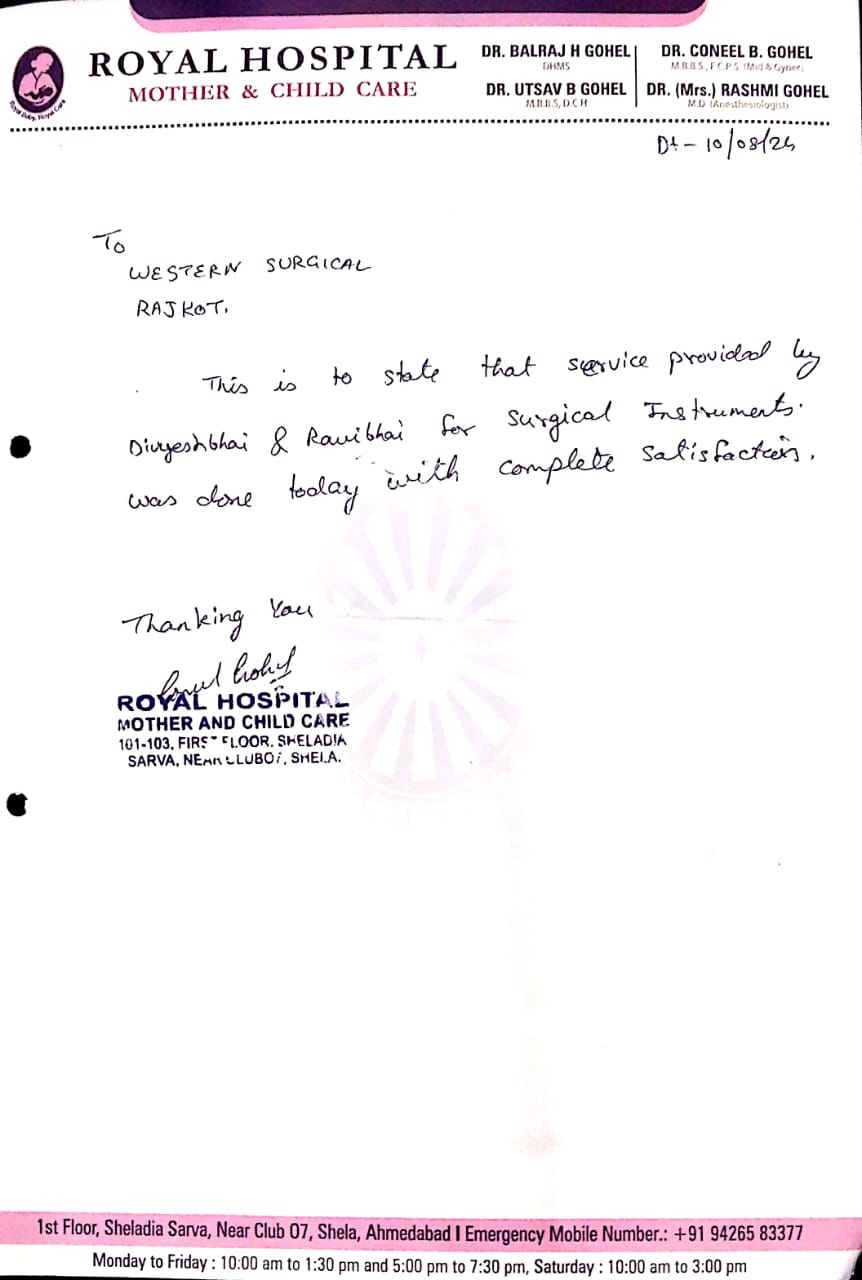 ROYAL HOSPITAL
MOTHER & CHILD CARE
Royal Baby, Royal Care
DR. BALRAJ H GOHEL
DHMS
DR. UTSAV B GOHEL
M.B.B.S, D.C.H
DR. CONEEL B. GOHEL
M.B.B.S, F.C.P.S (Mid & Gynec)
DR. (Mrs.) RASHMI GOHEL
M.D (Anesthesiologist)
Dt - 10/08/24
To
WESTERN SURGICAL
RAJKOT.
This is to state that service provided by
Divyeshbhai & Ravibhai for Surgical Instruments.
was done today with complete satisfaction.
Thanking You
ROYAL HOSPITAL
MOTHER AND CHILD CARE
101-103, FIRST FLOOR, SHELADIA
SARVA, NEAR CLUB07, SHELA.
1st Floor, Sheladia Sarva, Near Club 07, Shela, Ahmedabad I Emergency Mobile Number.: +91 94265 83377
Monday to Friday : 10:00 am to 1:30 pm and 5:00 pm to 7:30 pm, Saturday : 10:00 am to 3:00 pm